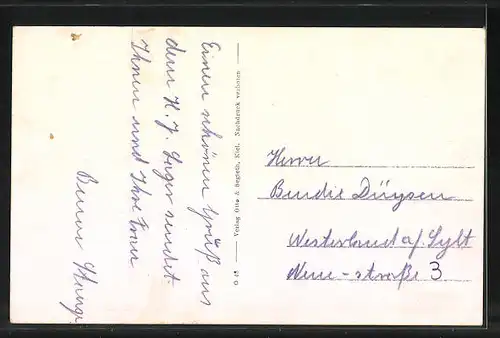 Einen schönen Gruß aus
dem H. J. Lager sendet
Ihnen und Ihre Frau
Benno
O 48 Verlag Otto Kiel. Nachdruck verboten
Herrn
Bendix Düysen
Westerland a/ Sylt
Neue-straße 3